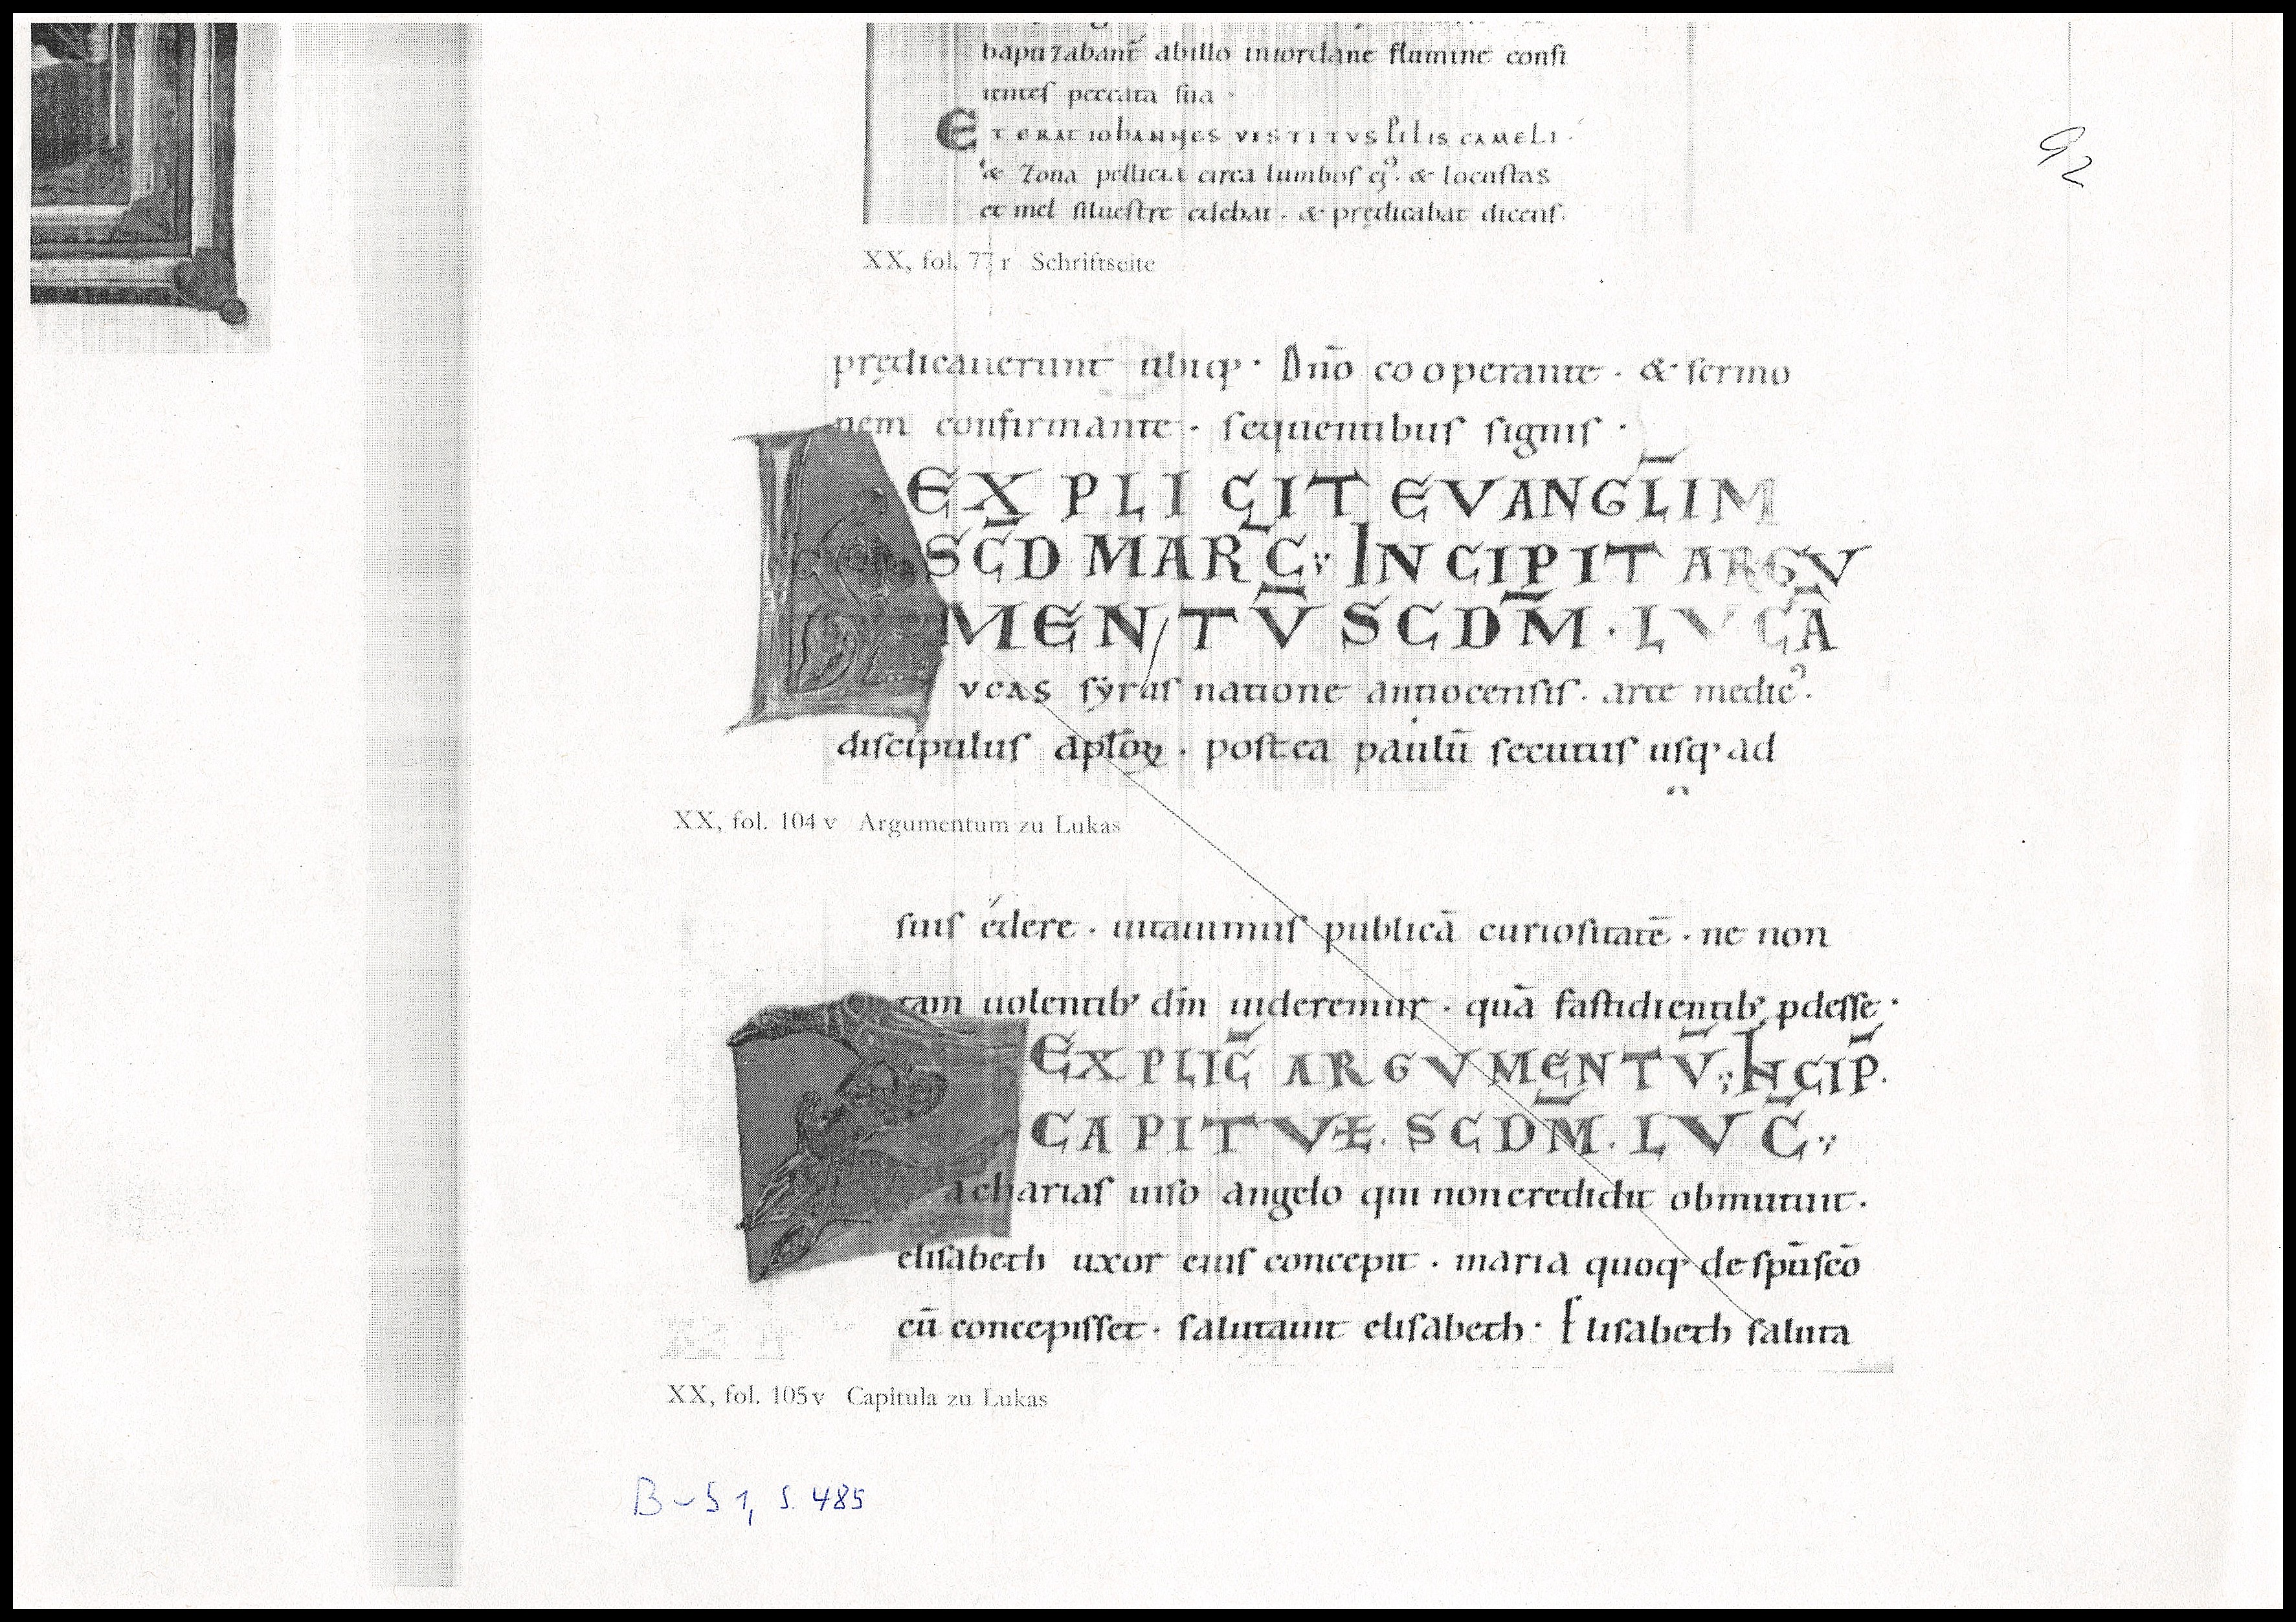 baptizabant̄ abillo iniordane flumine confi
tentes peccata sua ·
ET ERAT IOHANNES VESTITVS PILIS CAMELI ·
& zona pellicia circa lumbos ej᾽ · & locustas
et mel siluestre edebat · & prędicabat dicens ·
92
XX, fol. 77 r Schriftseite
prędicauerunt ubiq; · Dño cooperante · & sermo
nem confirmante · sequentibus signis ·
EXPLICIT EVANGL̄IM
SC̄D MARC̄ INCIPIT ARGV
MENTV̄ SCDM̄ · LVCĀ
VCAS sÿrus natione antiocensis · arte medic᾽ ·
discipulus apl̄oꝝ · postea paulū secutus usq; ad
XX, fol. 104 v Argumentum zu Lukas
suis édere · uitauimus publicā curiositatē · ne non
tam uolentib; dm̄ uideremur · quā fastidientib; pdesse ·
EXPLIC̄ ARGVMENTV̄ INCIP̄ ·
CAPITVLAE · SCDM̄ · LVC̄
acharias uiso angelo qui noncredidit obmutuit ·
elisabeth uxor eius concepit · maria quoq; de spū scō
cū concepisset · salutauit elisabeth · Elisabeth saluta
XX, fol. 105 v Capitula zu Lukas
B-51, S. 485